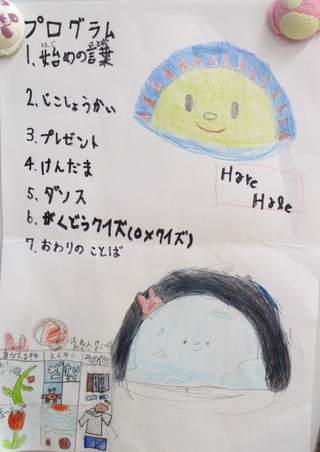 プログラム
1、始めの言葉
はじ ことば
2、じこしょうかい
3、プレゼント
4、けんだま
5、ダンス
6、がくどうクイズ(○×クイズ)
7、おわりのことば
Hare
Hare
えんそく
その他